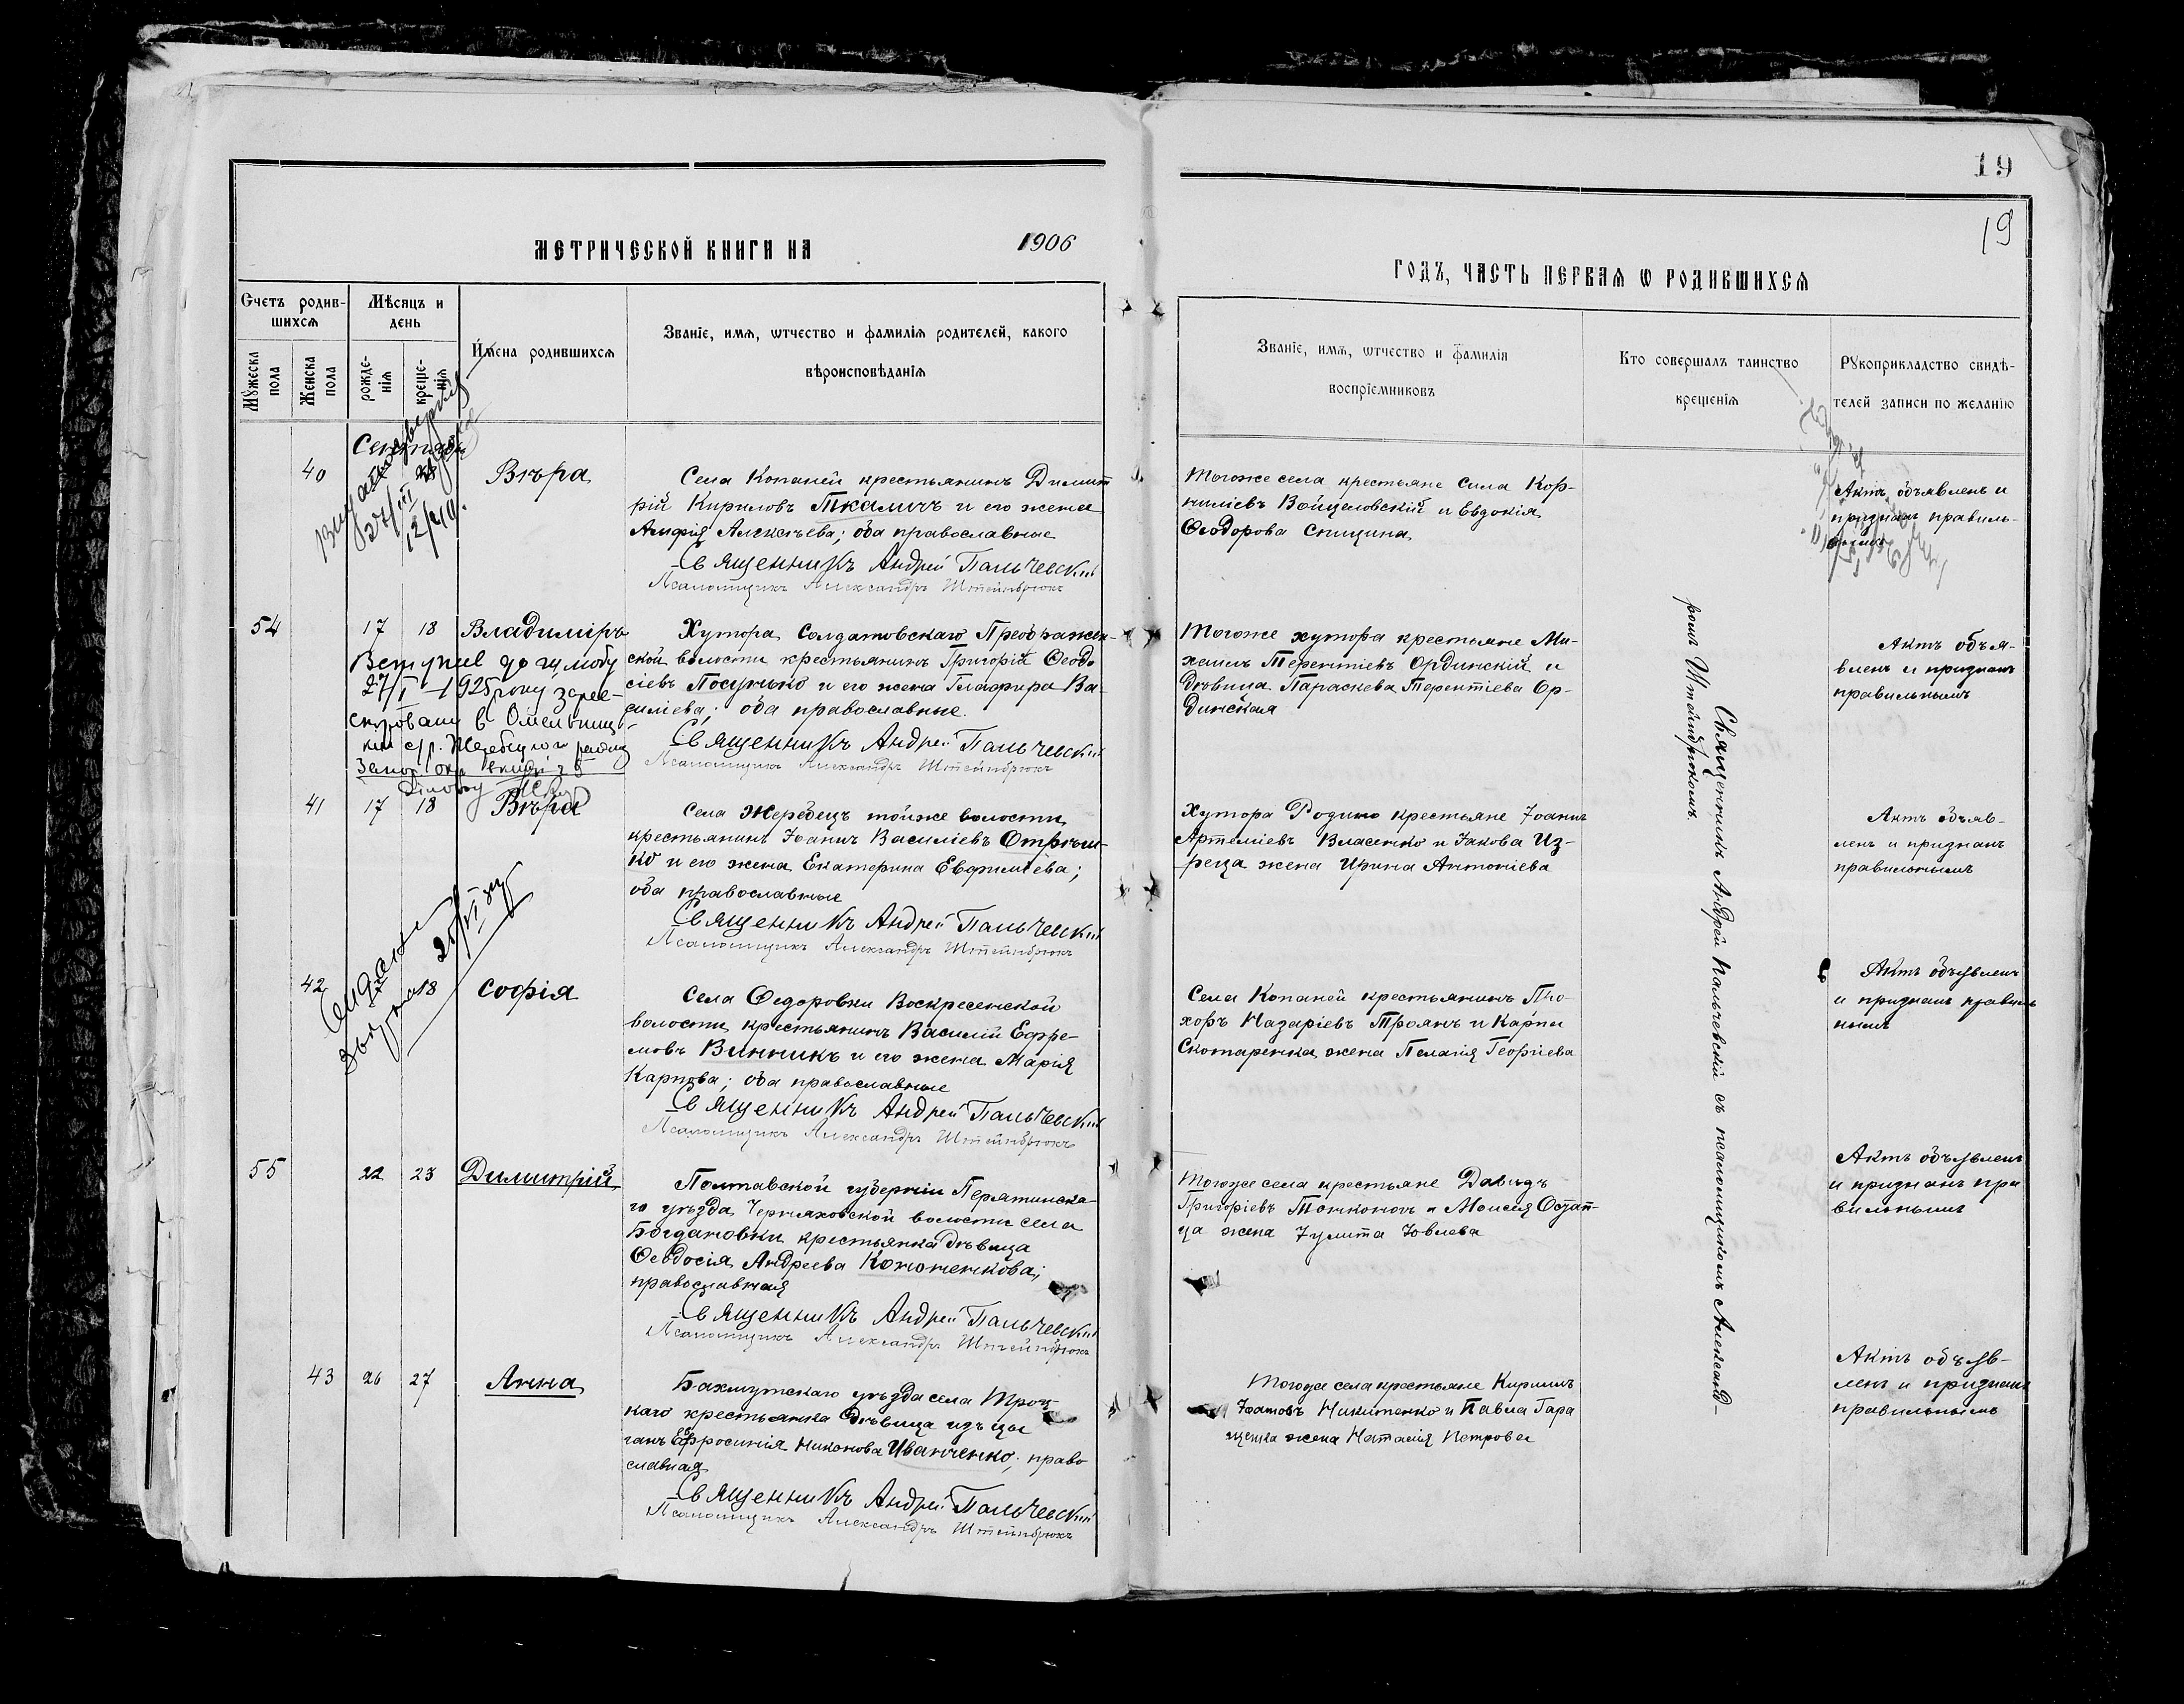 19
19
МЕТРИЧЕСКОЙ КНИГИ НА 1906
ГОДЪ, ЧАСТЬ ПЕРВАЯ Ѡ РОДИВШИХСЯ
Счетъ родив-
шихся
Мужеска пола
Женска пола
Мѣсяцъ и
день
рожде-
нія
креще-
нія
Имена родившихся
Званіе, имя, ѡтчество и фамилія родителей, какого
вѣроисповѣданія
Званіе, имя, ѡтчество и фамилія
воспріемниковъ
Кто совершалъ таинство
крещенія
Рукоприкладство свидѣ-
телей записи по желанію
40
Вѣра
Села Копаней крестьянинъ Димит
рій Кириловъ Ткаличъ и его жена
Алексѣева; оба православные
Священникъ Андрей Пальчевскій
Псаломщикъ Александръ Штейнбрюкъ
Тогоже села крестьяне Сила Кор-
ниліевъ Войцеловскій и Евдокія
Ѳеодорова Спицина
Актъ объявленъ и
признанъ правиль-
нымъ
54 17 18 Владиміръ
27/I - 1925 року, зареє-
Хутора Солдатовскаго Преображен-
ской волости крестьянинъ Григорій Ѳеодо
сіевъ Посунько и его жена Глафира Ва-
силіева; оба православные.
Священникъ Андрей Пальчевскій
Псаломщикъ Александръ Штейнбрюкъ
Тогоже хутора крестьяне Ми-
хаилъ Терентіевъ Ординскій и
дѣвица Параскева Терентіева Ор-
динская
Актъ объя-
вленъ и признанъ
правильнымъ
41 17 18 Вѣра
Села Жеребецъ тойже волости
крестьянинъ Іоаннъ Василіевъ Отрѣш-
ко и его жена Екатерина Евфиміева;
оба православные
Священникъ Андрей Пальчевскій
Псаломщикъ Александръ Штейнбрюкъ
Хутора Родино крестьяне Іоаннъ
Артеміевъ Власенко и Іакова Из-
реца жена Ирина Антоніева
Актъ объяв-
ленъ и признанъ
правильнымъ
42 17 18 Софія
Села Ѳедоровки Воскресенской
волости крестьянинъ Василій Ефре-
мовъ Винникъ и его жена Марія
Карпова; оба православные
Священникъ Андрей Пальчевскій
Псаломщикъ Александръ Штейнбрюкъ
Села Копаней крестьянинъ Про-
хоръ Назаріевъ Троянъ и Карпа
Скотаренка жена Пелагія Георгіева
Актъ объявленъ
и признанъ правиль
нымъ
55 22 23 Димитрій
Полтавской губерніи Пирятинска-
го уѣзда Черняховской волости села
Богдановки крестьянка дѣвица
Ѳеодосія Андреева Кононенкова;
православная
Священникъ Андрей Пальчевскій
Псаломщикъ Александръ Штейнбрюкъ
Тогоже села крестьяне Давидъ
Григоріевъ Тонконогъ и Моисея Остап-
ца жена Іулита Іовлева
Актъ объявленъ
и признанъ пра
вильнымъ
43 26 27 Анна
Бахмутскаго уѣзда села Троиц-
каго крестьянка дѣвица изъ цы
ганъ Ефросинія Никонова Иванченко; право
славная
Священникъ Андрей Пальчевскій
Псаломщикъ Александръ Штейнбрюкъ
Тогоже села крестьяне Кирилъ
Іоановъ Никитенко и Павла Гара
щенка жена Наталія Петрова
Актъ объяв-
ленъ и признанъ
правильнымъ
Священникъ Андрей Пальчевскій съ псаломщикомъ Александ-
ромъ Штейнбрюкомъ.